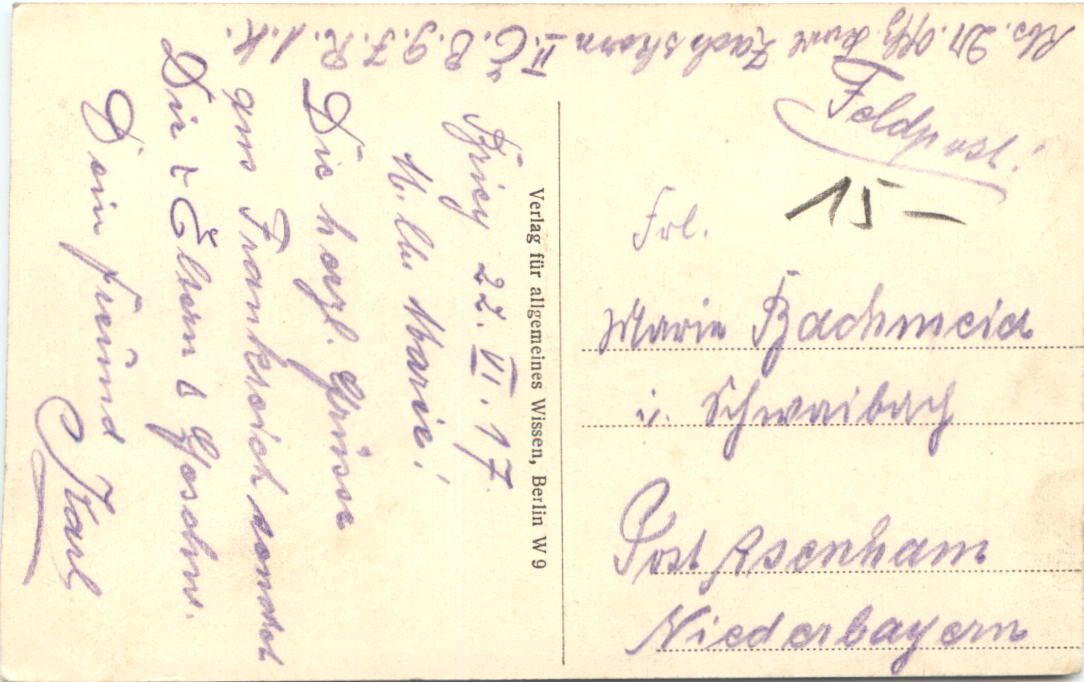 Abs. Karl II. E. B. G. F. R. 1. K.
Feldpost!
15-
Frl.
Marie Bachmeier
i. Schwaibach
Post Asenham
Niederbayern
Verlag für allgemeines Wissen, Berlin W 9
Briey 22. VI. 17.
M. lb. Marie!
Die herzl. Grüsse
aus Frankreich sendet
Dir & Eltern & Geschw.
Dein Freund
Karl